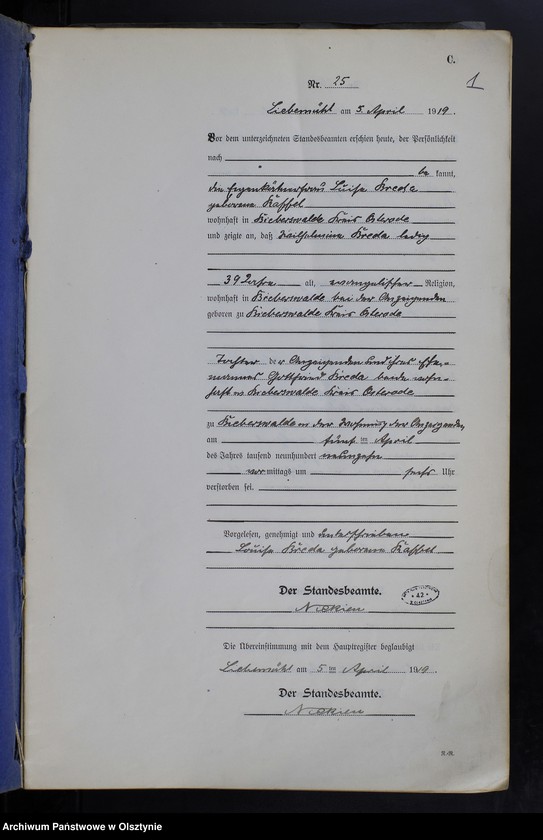 C.
1
Nr. 25
Liebemühl am 5. April 1919.
Vor dem unterzeichneten Standesbeamten erschien heute, der Persönlichkeit
nach
be kannt,
die Eigenkätnerfrau Luise Kreda
geborene Käffel
wohnhaft in Bieberswalde Kreis Osterode
und zeigte an, daß Wilhelmine Kreda ledig
39 Jahre alt, evangelischer Religion,
wohnhaft in Bieberswalde bei der Anzeigenden
geboren zu Bieberswalde Kreis Osterode
Tochter der Anzeigenden und ihres Ehe-
mannes Gottfried Kreda beide wohn-
haft in Bieberswalde Kreis Osterode
zu Bieberswalde in der Wohnung der Anzeigenden
am fünf ten April
des Jahres tausend neunhundert neunzehn
vor mittags um sechs Uhr
verstorben sei.
Vorgelesen, genehmigt und unterschrieben
Louise Kreda geborene Käffel
Der Standesbeamte.
42
Die Übereinstimmung mit dem Hauptregister beglaubigt
Liebemühl am 5 ten April 1919.
Der Standesbeamte.
Archiwum Państwowe w Olsztynie